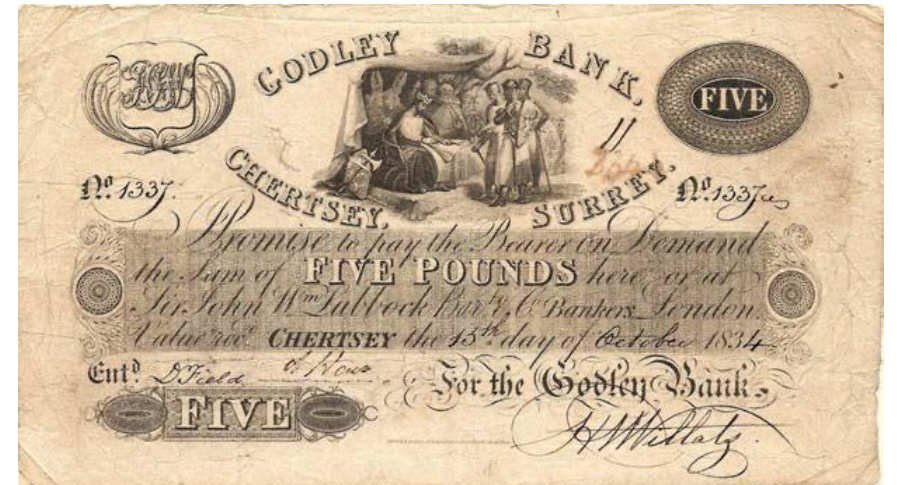 GODLEY BANK,
FIVE
11
CHERTSEY, SURREY.
No. 1337. No. 1337
Promise to pay the Bearer on Demand
the Sum of FIVE POUNDS here or at
Sir John Wm Lubbock Bart & Co Bankers London.
Value recd. CHERTSEY the 15th day of October 1834
Entd. D Field
For the Godley Bank
FIVE
H Willats